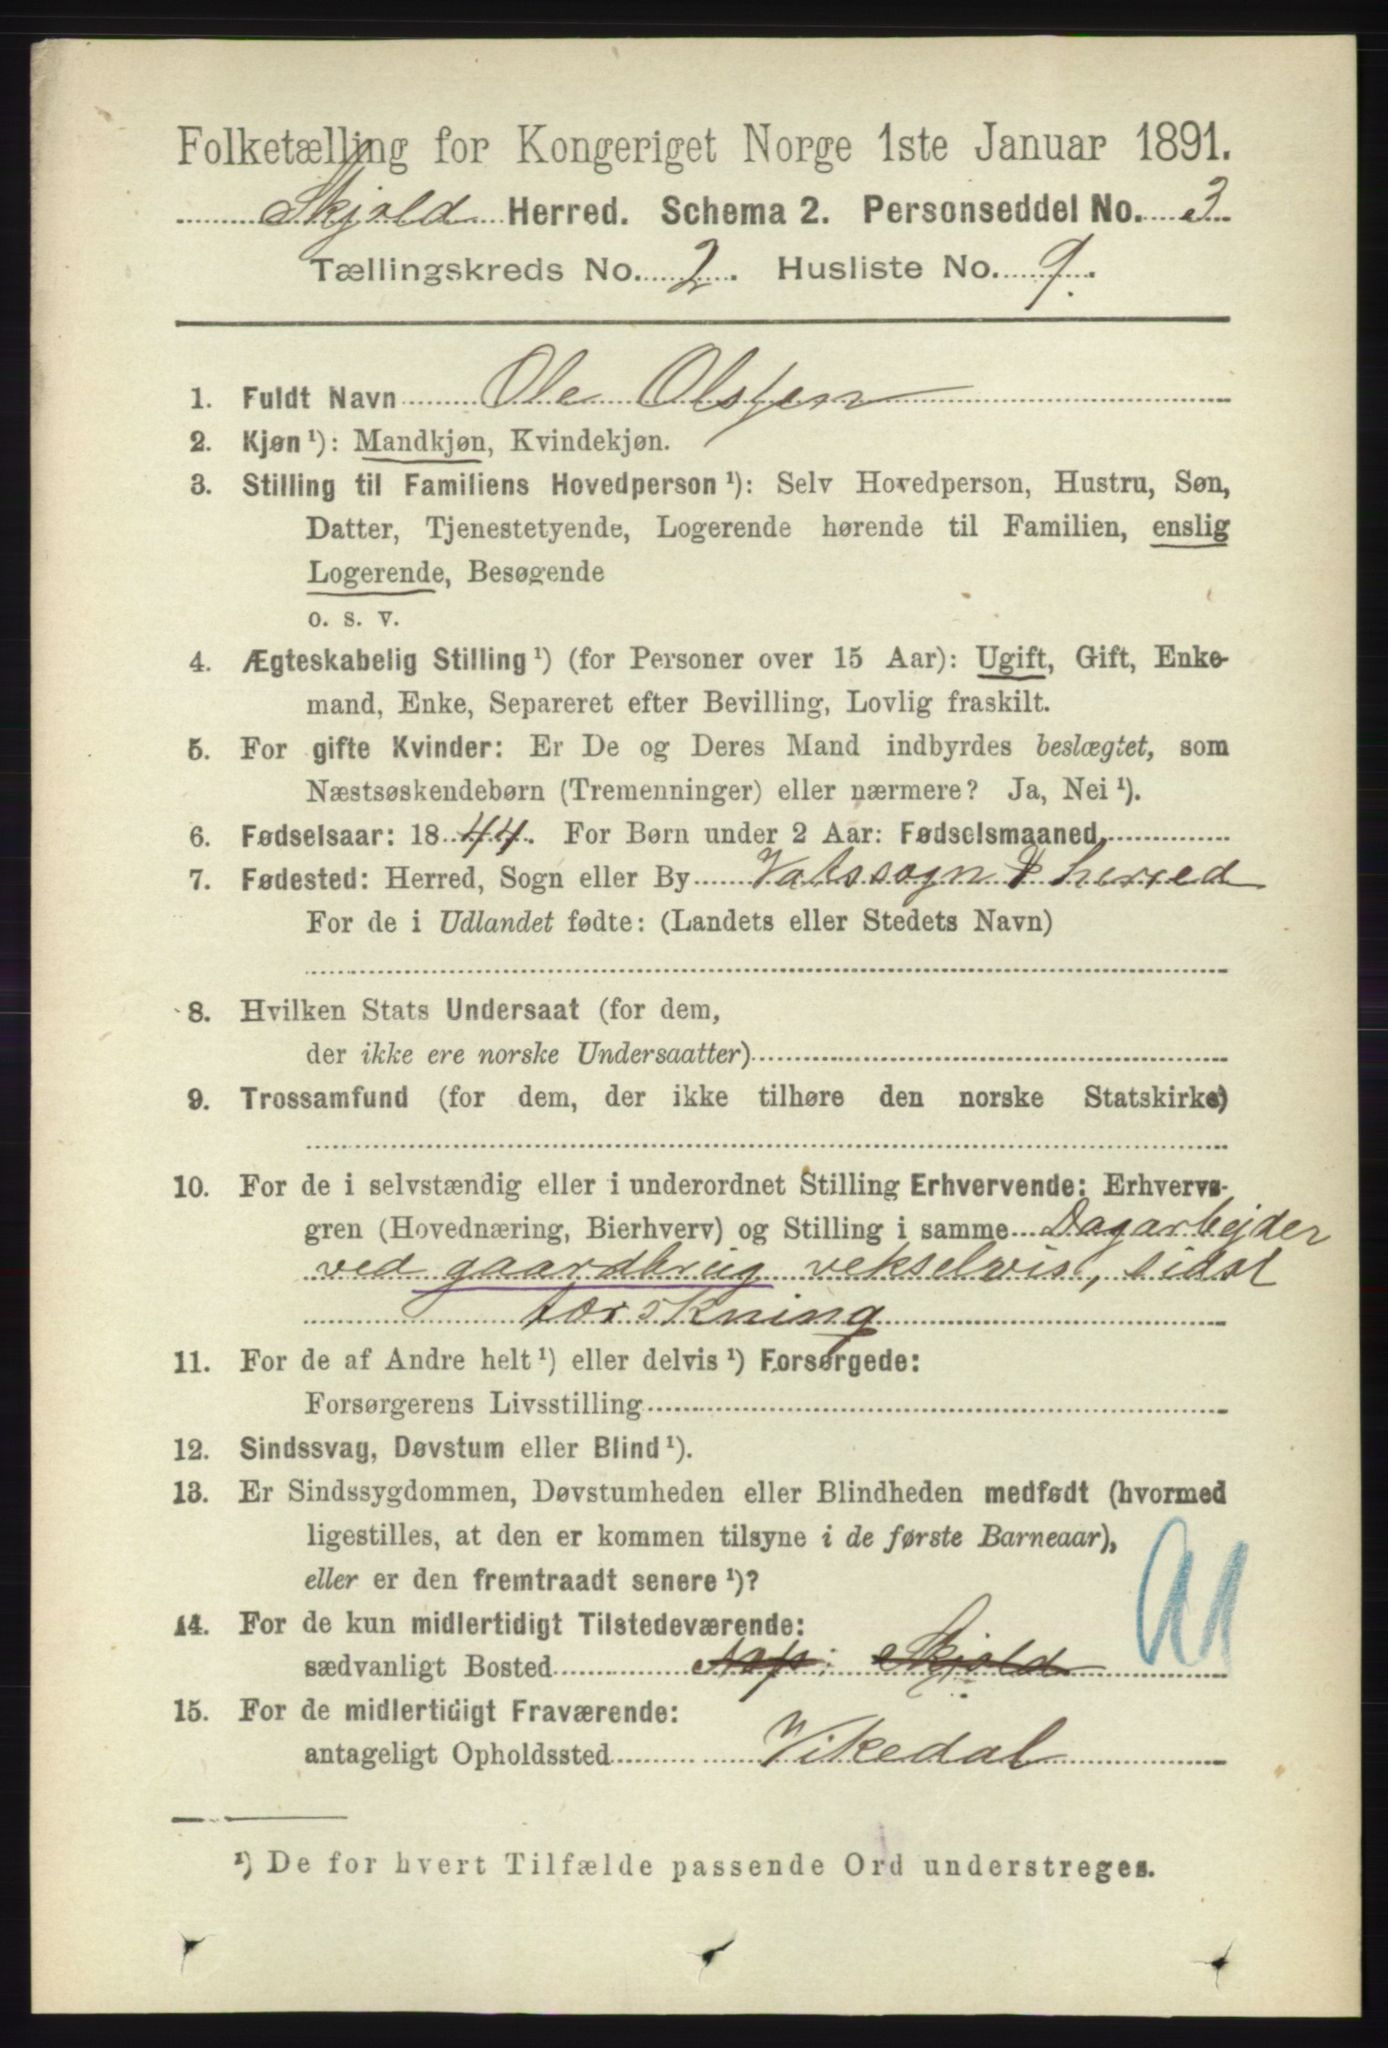 Folketælling for Kongeriget Norge 1ste Januar 1891.
Skjold Herred. Schema 2. Personseddel No. 3
Tællingskreds No. 2. Husliste No. 9.
1. Fuldt Navn Ole Olsen
2. Kjøn¹): Mandkjøn, Kvindekjøn.
3. Stilling til Familiens Hovedperson¹): Selv Hovedperson, Hustru, Søn,
Datter, Tjenestetyende, Logerende hørende til Familien, enslig
Logerende, Besøgende
o. s. v.
4. Ægteskabelig Stilling¹) (for Personer over 15 Aar): Ugift, Gift, Enke-
mand, Enke, Separeret efter Bevilling, Lovlig fraskilt.
5. For gifte Kvinder: Er De og Deres Mand indbyrdes beslægtet, som
Næstsøskendebørn (Tremenninger) eller nærmere? Ja, Nei¹).
6. Fødselsaar: 1844. For Børn under 2 Aar: Fødselsmaaned
7. Fødested: Herred, Sogn eller By Vats sogn & herred
For de i Udlandet fødte: (Landets eller Stedets Navn)
8. Hvilken Stats Undersaat (for dem,
der ikke ere norske Undersaatter)
9. Trossamfund (for dem, der ikke tilhøre den norske Statskirke)
10. For de i selvstændig eller i underordnet Stilling Erhvervende: Erhvervs-
gren (Hovednæring, Bierhverv) og Stilling i samme Dagarbejder
ved gaardbrug vekselvis, sidst
tærskning
11. For de af Andre helt¹) eller delvis¹) Forsørgede:
Forsørgerens Livsstilling
12. Sindssvag, Døvstum eller Blind¹).
13. Er Sindssygdommen, Døvstumheden eller Blindheden medfødt (hvormed
ligestilles, at den er kommen tilsyne i de første Barneaar),
eller er den fremtraadt senere¹)?
14. For de kun midlertidigt Tilstedeværende:
sædvanligt Bosted Skjold
15. For de midlertidigt Fraværende:
antageligt Opholdssted Vikedal
¹) De for hvert Tilfælde passende Ord understreges.